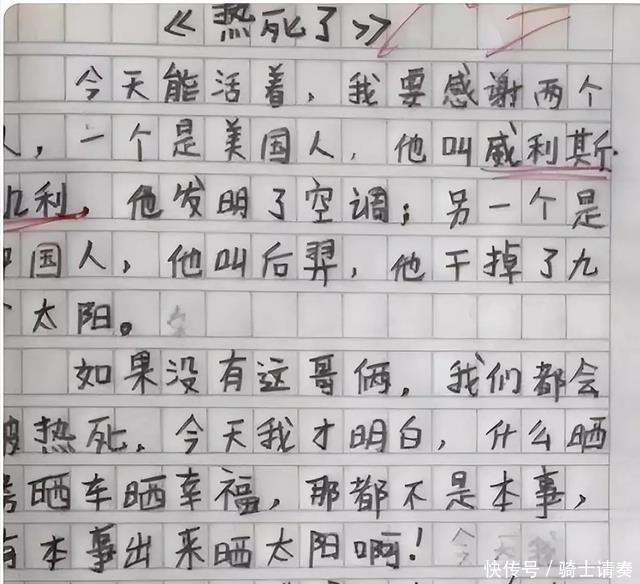 《热死了》
今天能活着，我要感谢两个
人，一个是美国人，他叫威利斯·
凯利，他发明了空调；另一个是
中国人，他叫后羿，他干掉了九
个太阳。
如果没有这哥俩，我们都会
被热死，今天我才明白，什么晒
房晒车晒幸福，那都不是本事，
有本事出来晒太阳啊！
快传号／骑士请奏